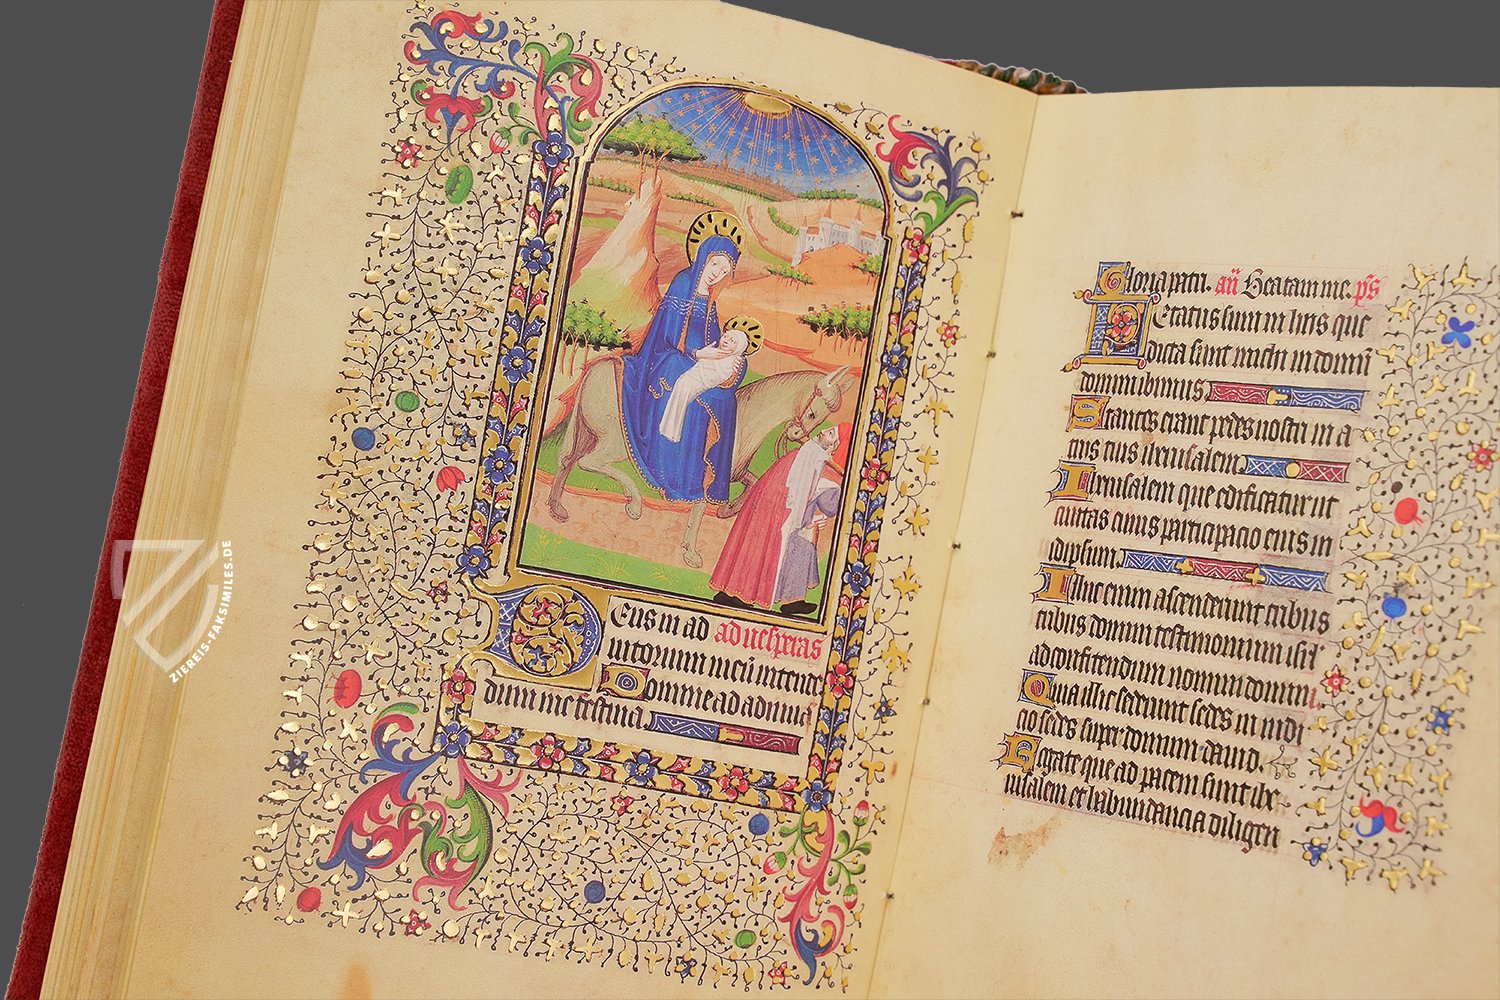 Eus in ad ad uesperas
iutorium meū intende
Domine ad adiuuā
dum me festina.
Gloria patri. an̄ Beatam me. p̄s
Letatus sum in hiis que
dicta sunt michi in domū
domini ibimus
Stantes erant pedes nostri in a
triis tuis iherusalem
Iherusalem que edificatur ut
ciuitas cuius participacio eius in
idipsum
Illuc enim ascenderunt tribus
tribus domini testimonium isrl
ad confitendum nomini domini
Quia illic sederunt sedes in iudi
cio sedes super domum dauid.
Rogate que ad pacem sunt ihe
rusalem et habundancia diligen
ZIEREIS-FAKSIMILES.DE